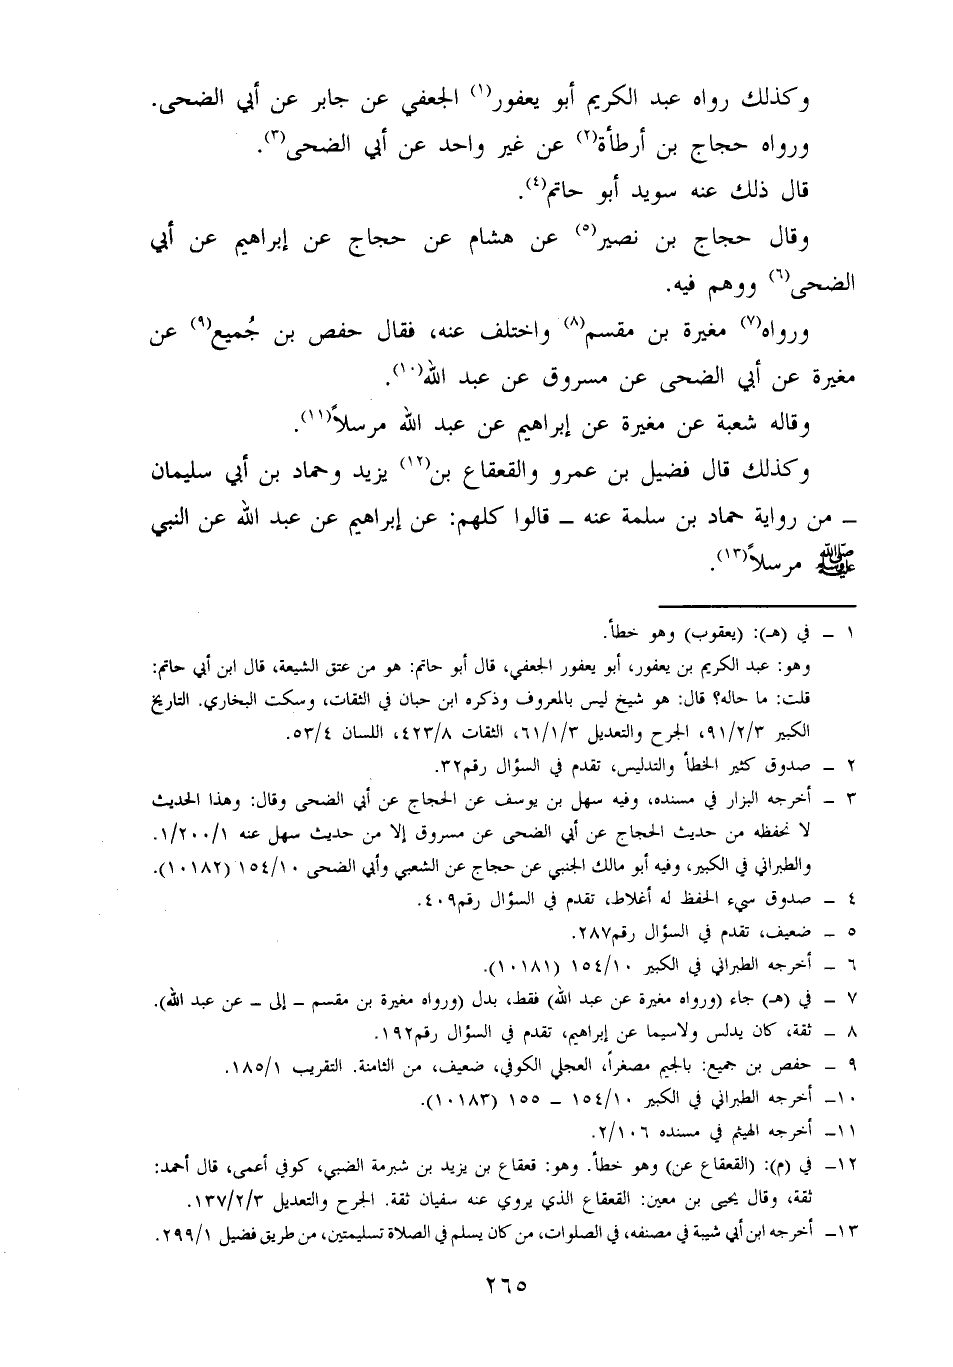 وكذلك رواه عبد الكريم أبو يعفور(١) الجعفي عن جابر عن أبي الضحى.
ورواه حجاج بن أرطأة(٢) عن غير واحد عن أبي الضحى(٣).
قال ذلك عنه سويد أبو حاتم(٤).
وقال حجاج بن نصير(٥) عن هشام عن حجاج عن إبراهيم عن أبي
الضحى(٦) ووهم فيه.
ورواه(٧) مغيرة بن مقسم(٨) واختلف عنه، فقال حفص بن جُميع(٩) عن
مغيرة عن أبي الضحى عن مسروق عن عبد الله(١٠).
وقاله شعبة عن مغيرة عن إبراهيم عن عبد الله مرسلاً(١١).
وكذلك قال فضيل بن عمرو والقعقاع بن(١٢) يزيد وحماد بن أبي سليمان
ـ من رواية حماد بن سلمة عنه ـ قالوا كلهم: عن إبراهيم عن عبد الله عن النبي
ﷺ مرسلاً(١٣).
١ ـ في (هـ): (يعقوب) وهو خطأ.
وهو: عبد الكريم بن يعفور، أبو يعفور الجعفي، قال أبو حاتم: هو من عتق الشيعة، قال ابن أبي حاتم:
قلت: ما حاله؟ قال: هو شيخ ليس بالمعروف وذكره ابن حبان في الثقات، وسكت البخاري. التاريخ
الكبير ٩١/٢/٣، الجرح والتعديل ٦١/١/٣، الثقات ٤٢٣/٨، اللسان ٥٣/٤.
٢ ـ صدوق كثير الخطأ والتدليس، تقدم في السؤال رقم٣٢.
٣ ـ أخرجه البزار في مسنده، وفيه سهل بن يوسف عن الحجاج عن أبي الضحى وقال: وهذا الحديث
لا نحفظه من حديث الحجاج عن أبي الضحى عن مسروق إلا من حديث سهل عنه ١/٢٠٠/١.
والطبراني في الكبير، وفيه أبو مالك الجنبي عن حجاج عن الشعبي وأبي الضحى ١٥٤/١٠ (١٠١٨٢).
٤ ـ صدوق سيء الحفظ له أغلاط، تقدم في السؤال رقم٤٠٩.
٥ ـ ضعيف، تقدم في السؤال رقم٢٨٧.
٦ ـ أخرجه الطبراني في الكبير ١٥٤/١٠ (١٠١٨١).
٧ ـ في (هـ) جاء (ورواه مغيرة عن عبد الله) فقط، بدل (ورواه مغيرة بن مقسم ـ إلى ـ عن عبد الله).
٨ ـ ثقة، كان يدلس ولاسيما عن إبراهيم، تقدم في السؤال رقم١٩٢.
٩ ـ حفص بن جميع: بالجيم مصغراً، العجلي الكوفي، ضعيف، من الثامنة. التقريب ١٨٥/١.
١٠ـ أخرجه الطبراني في الكبير ١٥٤/١٠ ـ ١٥٥ (١٠١٨٣).
١١ـ أخرجه الهيثم في مسنده ٢/١٠٦.
١٢ـ في (م): (القعقاع عن) وهو خطأ. وهو: قعقاع بن يزيد بن شبرمة الضبي، كوفي أعمى، قال أحمد:
ثقة، وقال يحيى بن معين: القعقاع الذي يروي عنه سفيان ثقة. الجرح والتعديل ١٣٧/٢/٣.
١٣ـ أخرجه ابن أبي شيبة في مصنفه، في الصلوات، من كان يسلم في الصلاة تسليمتين، من طريق فضيل ٢٩٩/١.
٢٦٥